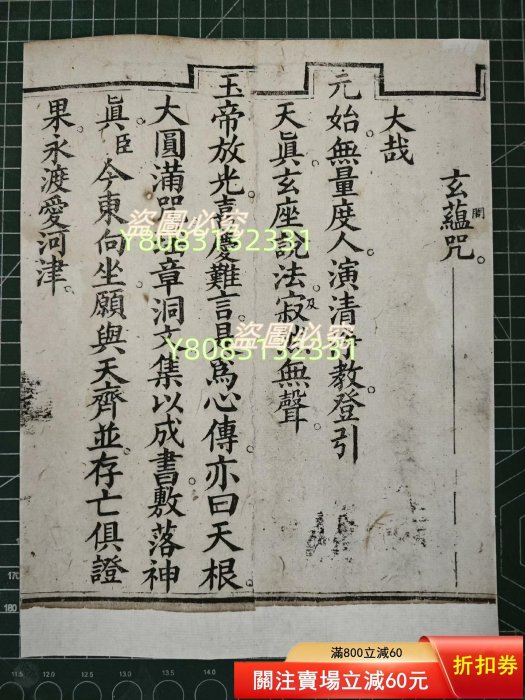 開
玄蘊咒。
大哉
元始。無量度人。演清教。登引
天眞。玄座說法。及寂無聲。
玉帝放光。喜慶難言。是爲心傳。亦曰天根。
大圓滿咒章洞文。集以成書。敷落神
眞。臣今東向坐。願與天齊並。存亡俱證
果永渡愛河津。
盜圖必究
Y8085152331
盜圖必究
Y8085152331
170
180
11.5 12.0 12.5 13.0 13.5 14.0
滿800立減60
關注賣場立減60元
折扣券